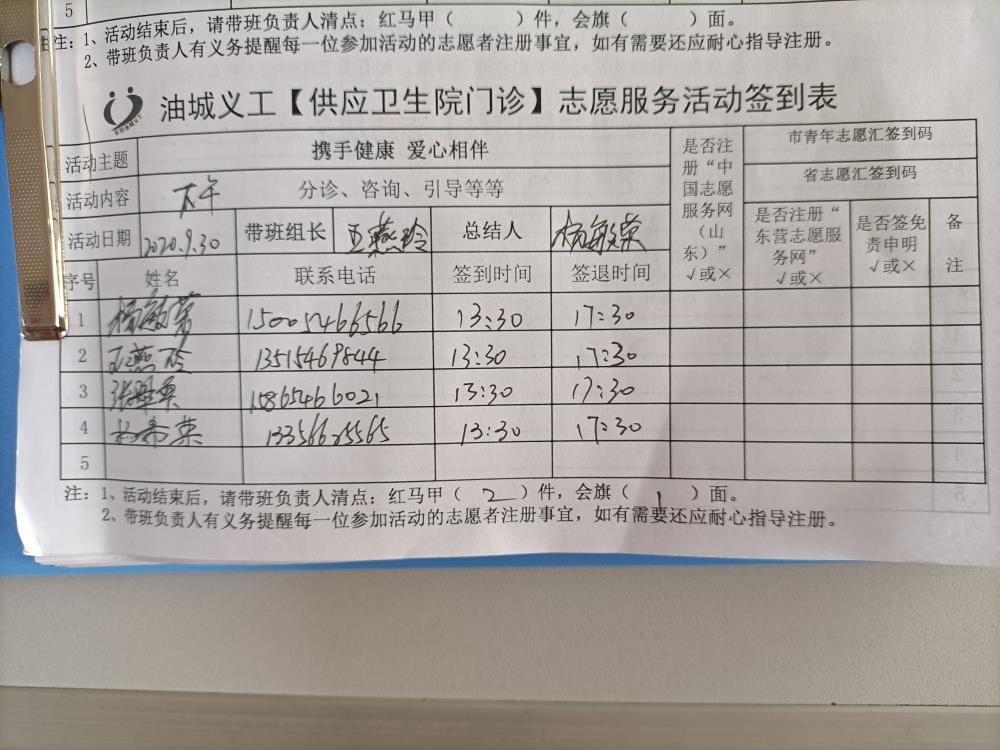 5
注：1、活动结束后，请带班负责人清点：红马甲（ ）件，会旗（ ）面。
2、带班负责人有义务提醒每一位参加活动的志愿者注册事宜，如有需要还应耐心指导注册。
油城义工【供应卫生院门诊】志愿服务活动签到表
活动主题 携手健康 爱心相伴 是否注册“中国志愿服务网（山东）”√或× 市青年志愿汇签到码
活动内容 下午 分诊、咨询、引导等等 省志愿汇签到码
活动日期 2020.9.30 带班组长 王燕玲 总结人 杨敏荣 是否注册“东营志愿服务网”√或× 是否签免责申明√或× 备注
序号 姓名 联系电话 签到时间 签退时间
1 杨敏荣 15005466566 13:30 17:30
2 王燕玲 13515469844 13:30 17:30
3 15865466021 13:30 17:30
4 13356625565 13:30 17:30
5
注：1、活动结束后，请带班负责人清点：红马甲（2）件，会旗（1）面。
2、带班负责人有义务提醒每一位参加活动的志愿者注册事宜，如有需要还应耐心指导注册。